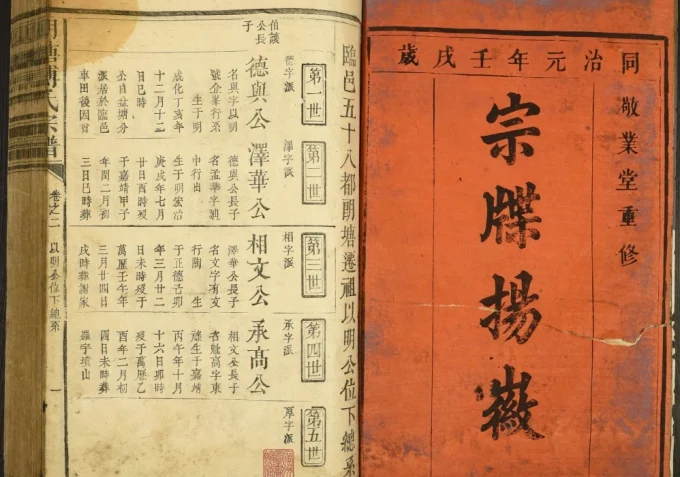 同治元年壬戌歲
敬業堂重修
宗牒揚徽
臨邑五十八都明塘遷祖以明公位下總系
第一世
字派
伯誠公長子
德與公
名與字以明
號企業行系
生于明
成化丁亥年
十二月十二
日巳時
公自益塘分
派居於臨邑
車田後因首
第二世
澤字派
澤華公
德與公長子
名孟華字純
中行由
生于明宏治
庚戌年七月
廿日酉時歿
于嘉靖甲子
年閏二月初
三日巳時葬
第三世
相字派
相文公
澤華公長子
名文字有文
行陶 生
于正德己卯
年三月廿二
日未時歿于
萬歷壬午年
三月廿四日
戌時葬謝家
第四世
承字派
承高公
相文公長子
名魁高字東
藤生于嘉靖
丙午年十月
十六日卯時
歿于萬歷乙
酉年二月初
四日未時葬
羅宇墳山
第五世
厚字派
明塘傅氏宗譜
卷之二
以明公位下總系
一